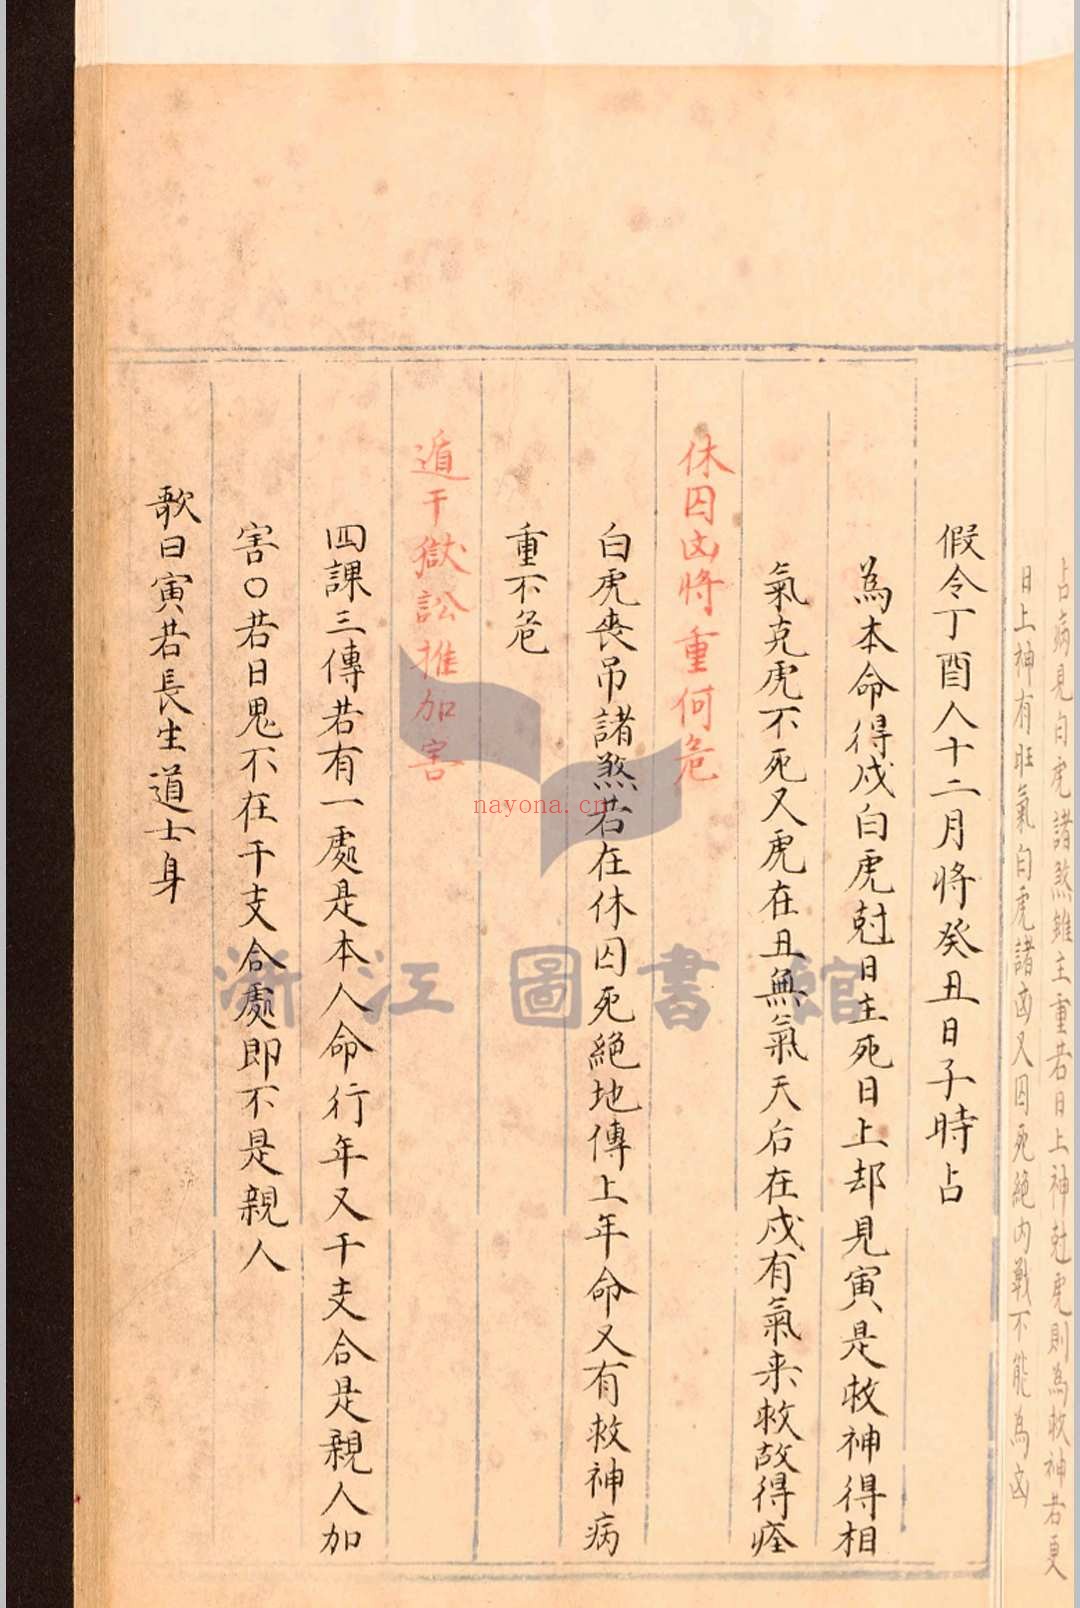 占病見白虎諸煞雖主重若日上神尅虎則為救神若更
日上神有旺氣白虎諸凶又囚死絕內戰不能為凶
假令丁酉人十二月將癸丑日子時占
為本命得戌白虎尅日主死日上却見寅是救神得相
氣克虎不死又虎在丑無氣天后在戌有氣來救故得痊
休囚凶將重何危
白虎喪吊諸煞若在休囚死絕地傳上年命又有救神病
重不危
遁干獄訟推加害
四課三傳若有一處是本人命行年又干支合是親人加
害〇若日鬼不在干支合處即不是親人
歌曰寅若長生道士身
nayona.cn
浙江圖書館